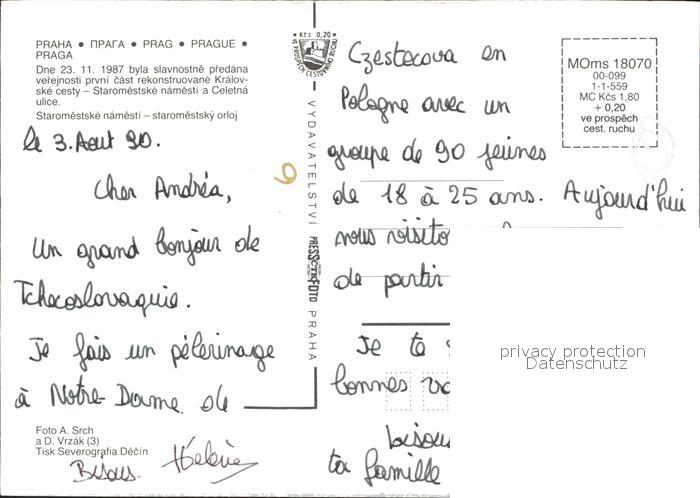 PRAHA • ПРАГА • PRAG • PRAGUE •
PRAGA
Dne 23. 11. 1987 byla slavnostně předána
veřejnosti první část rekonstruované Královské
cesty – Staroměstské náměstí a Celetná
ulice.
Staroměstské náměstí – staroměstský orloj
le 3. Aout 90.
Cher Andréa,
Un grand bonjour de
Tchecoslovaquie.
Je fais un pélerinage
à Notre-Dame de
Foto A. Srch
a D. Vrzák (3)
Tisk Severografia Děčín
Bisous. Hélène
• Kčs 0,20 •
VE PROSPĚCH CESTOVNÍHO RUCHU
VYDAVATELSTVÍ PRESSFOTO PRAHA
6
Czestecova en
Pologne avec un
groupe de 90 jeunes
de 18 à 25 ans. Aujourd'hui
nous visito
de partir
Je te
bonnes va
bisous
ta famille
MOms 18070
00-099
1-1-559
MC Kčs 1,80
+ 0,20
ve prospěch
cest. ruchu
privacy protection
Datenschutz